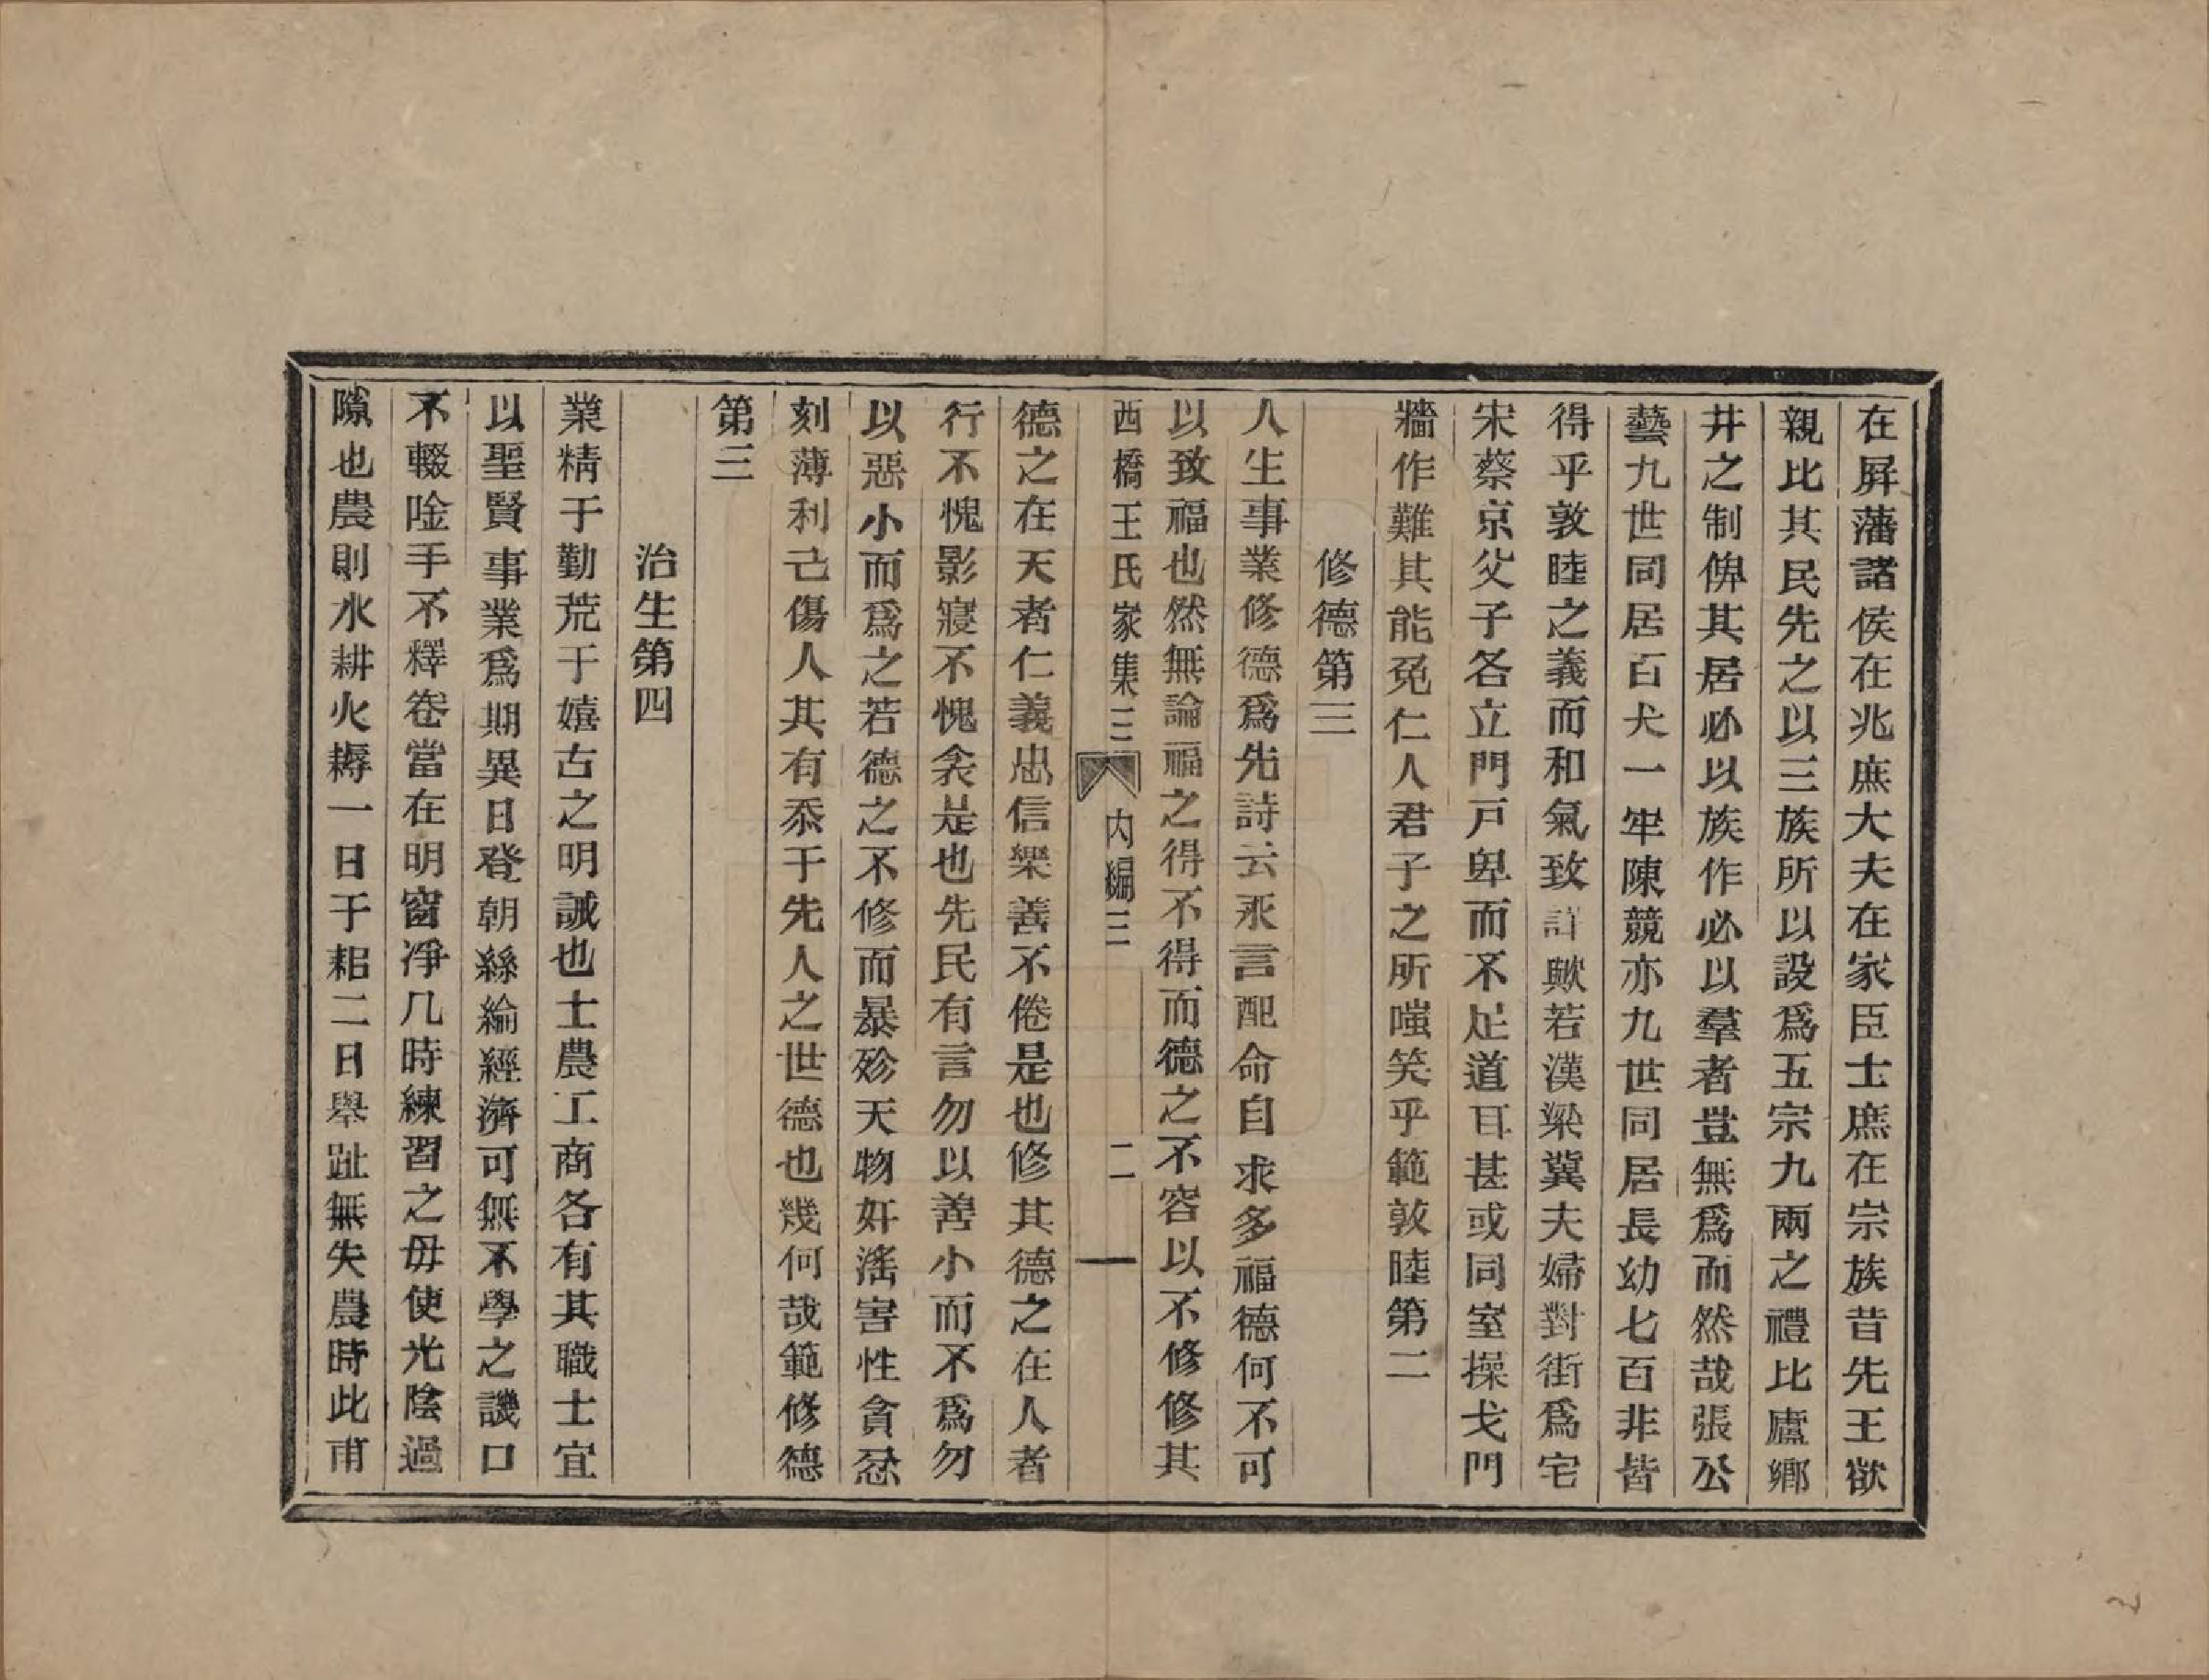 在屛藩諸侯在兆庶大夫在家臣士庶在宗族昔先王欲
親比其民先之以三族所以設爲五宗九兩之禮比廬鄉
井之制俾其居必以族作必以羣者豈無爲而然哉張公
藝九世同居百犬一牢陳競亦九世同居長幼七百非皆
得乎敦睦之義而和氣致詳歟若漢梁冀夫婦對街爲宅
宋蔡京父子各立門戸卑而不足道耳甚或同室操戈門
牆作難其能免仁人君子之所嗤笑乎範敦睦第二
修德第三
人生事業修德爲先詩云永言配命自求多福德何不可
以致福也然無論福之得不得而德之不容以不修修其
西橋王氏家集三 內編三 二
德之在天者仁義忠信樂善不倦是也修其德之在人者
行不愧影寢不愧衾是也先民有言勿以善小而不爲勿
以惡小而爲之若德之不修而暴殄天物奸滛害性貪忍
刻薄利己傷人其有忝于先人之世德也幾何哉範修德
第三
治生第四
業精于勤荒于嬉古之明誡也士農工商各有其職士宜
以聖賢事業爲期異日登朝絲綸經濟可無不學之譏口
不輟唫手不釋卷當在明窗凈几時練習之毋使光陰過
隙也農則水耕火耨一日于耜二日舉趾無失農時此甫